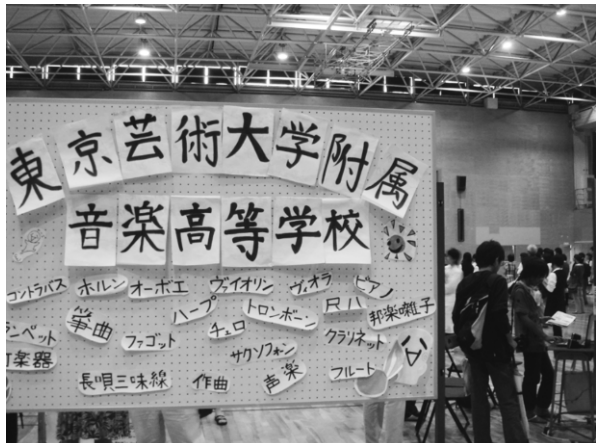 東京芸術大学附属
音楽高等学校
コントラバス ホルン オーボエ ヴァイオリン ヴィオラ ピアノ
箏曲 ハープ トロンボーン 尺八 邦楽囃子
ンペット ファゴット チェロ クラリネット
打楽器 サクソフォン フルート
長唄三味線 作曲 声楽